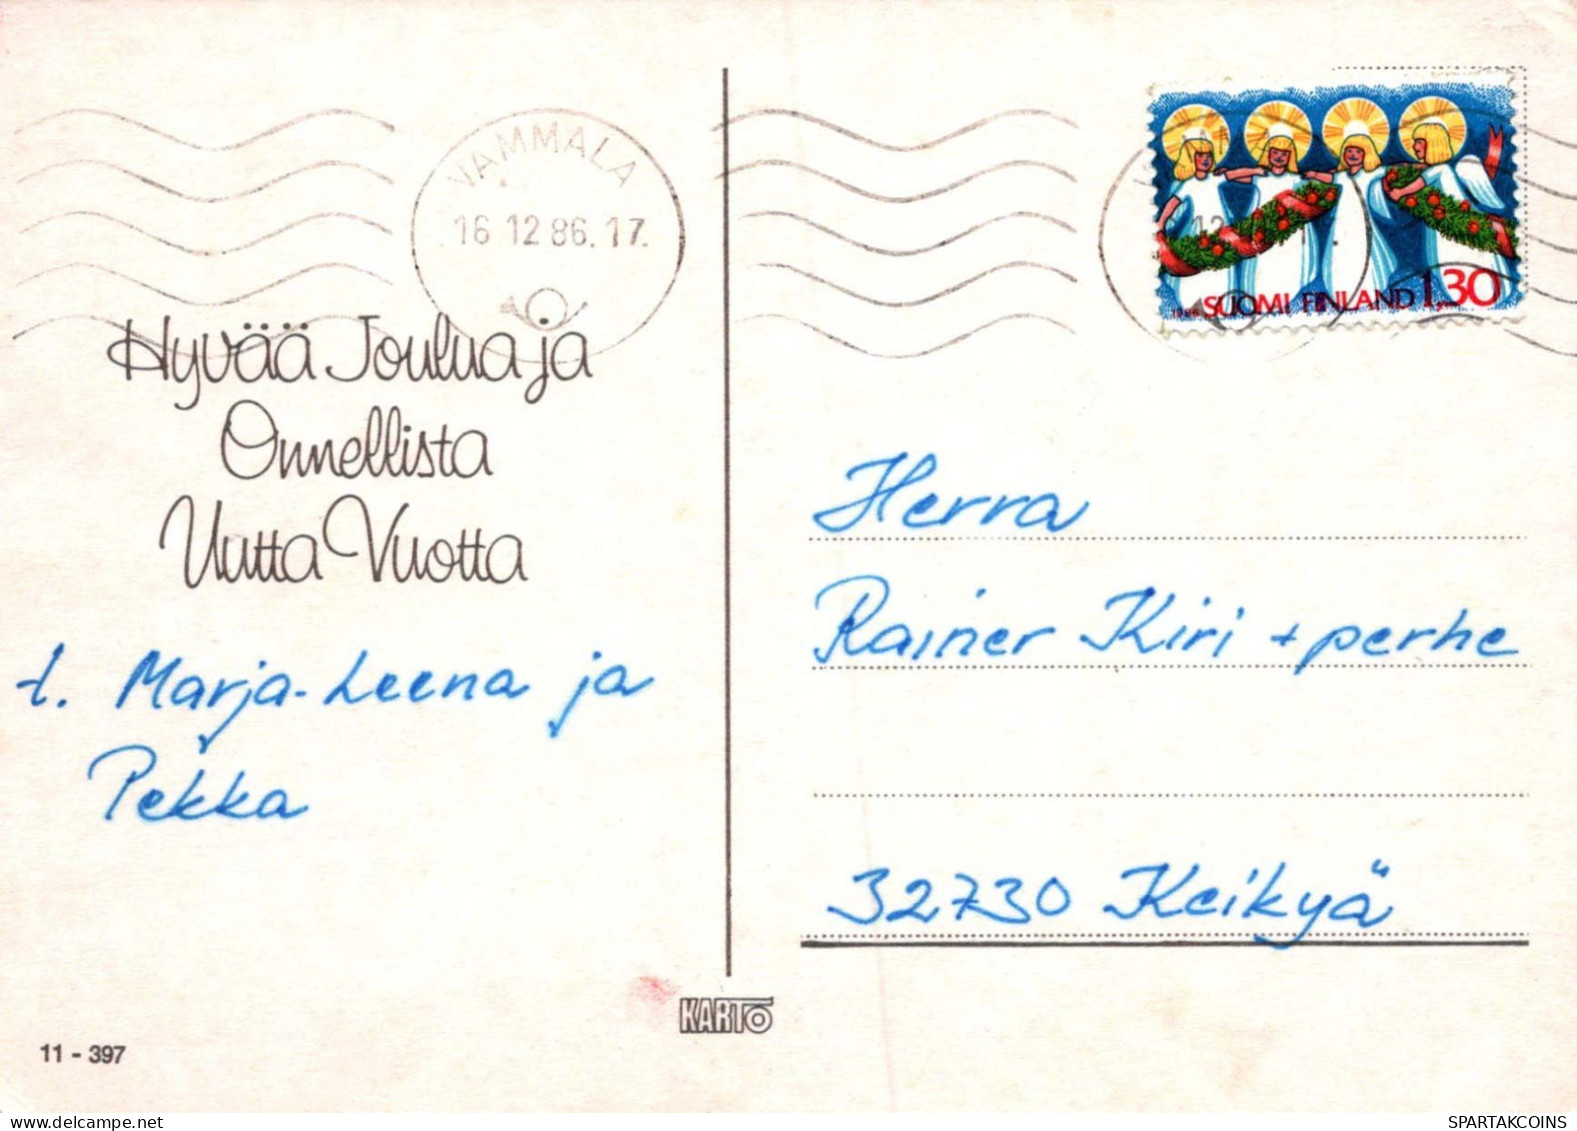 VAMMALA
16 12 86. 17.
1986 SUOMI FINLAND 1,30
Hyvää Joulua ja
Onnellista
Uutta Vuotta
t. Marja-Leena ja
Pekka
Herra
Rainer Kiri + perhe
32730 Keikyä
KARTO
11 - 397
SPARTAKCOINS